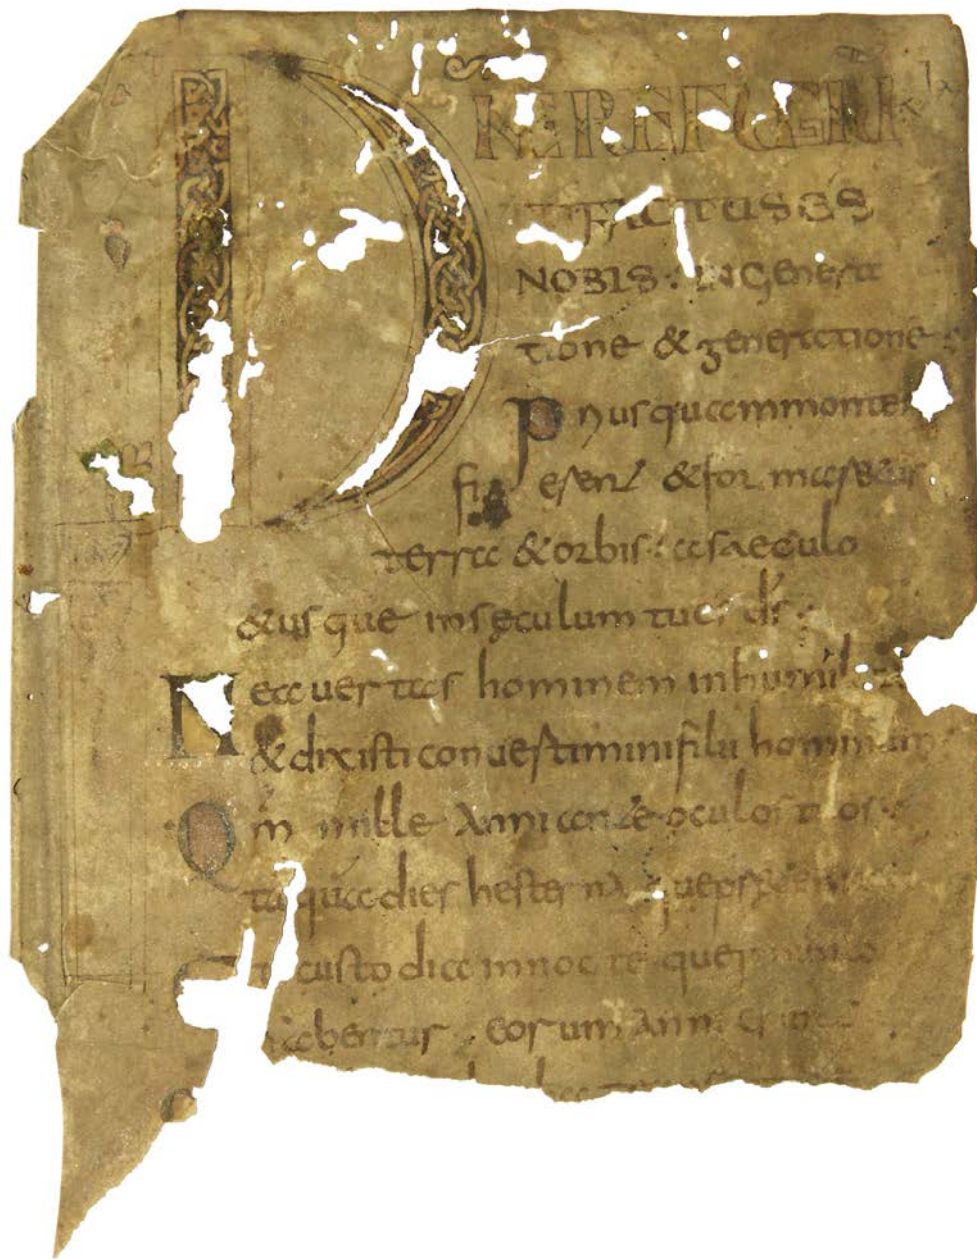 DNE REFUGIU
FACTUS ES
NOBIS : IN Genera
tione & generatione
P riusquam montes
fi erent & for maretur
terra & orbis : a saeculo
& usque in sęculum tu es d̅s :
Ne auertas hominem in humil
& dixisti conuertimini filii hominum
Qm̅ mille Anni ante oculos tuos :
quā dies hesterna
custodia in nocte que nihilo
abentur : eorum Anni erunt